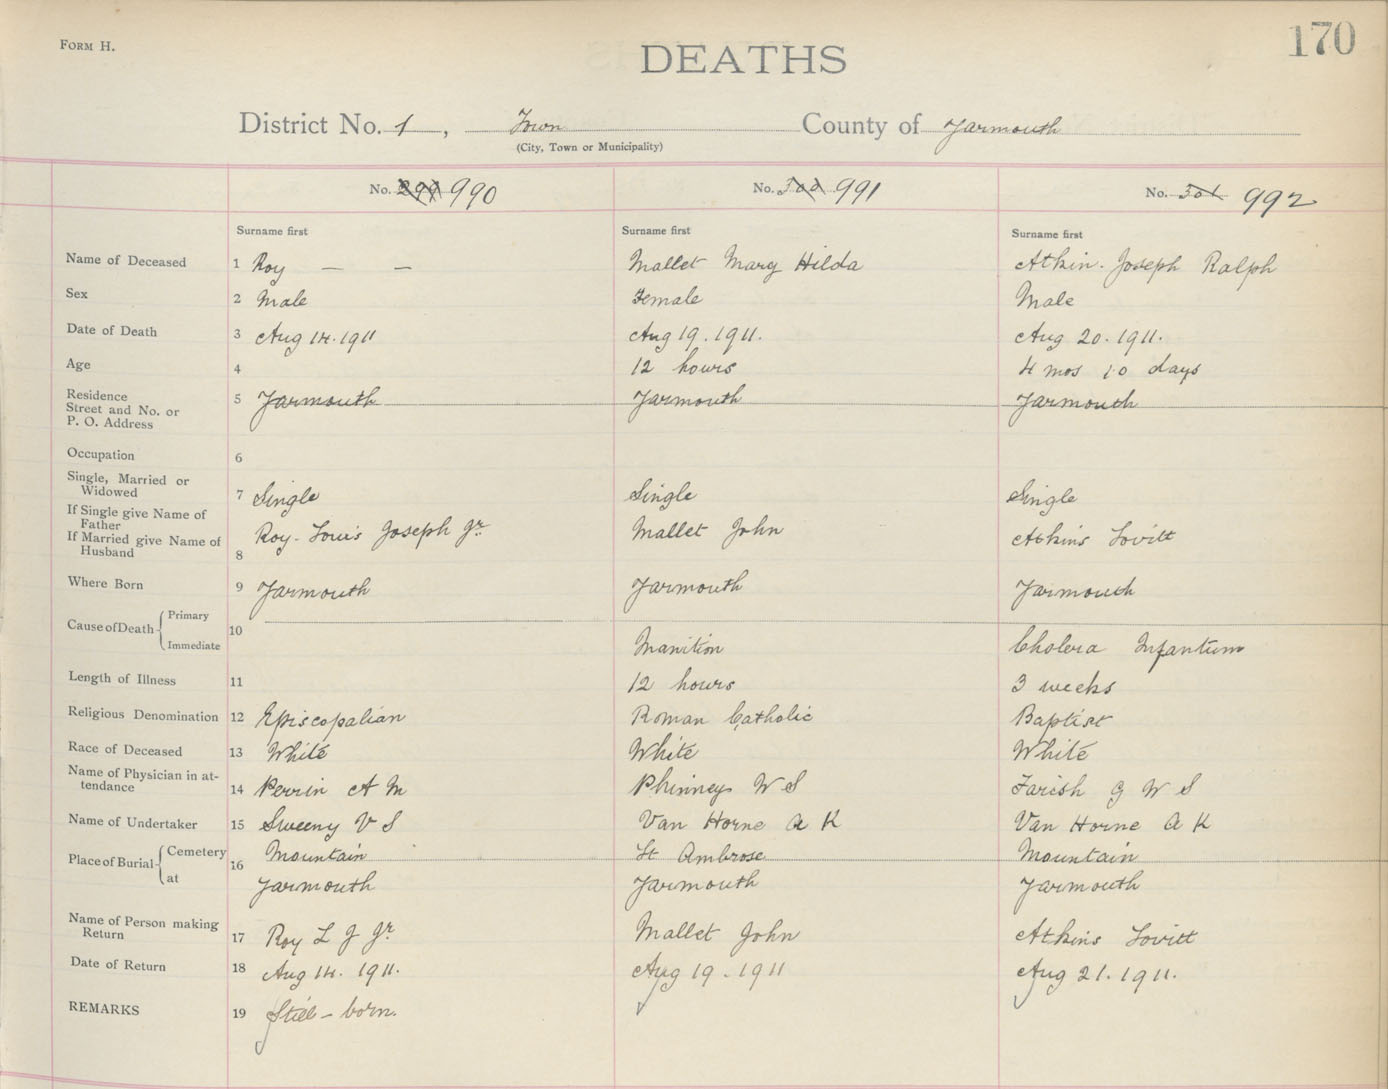 FORM H.
170
DEATHS
District No. 1, Town County of Yarmouth
(City, Town or Municipality)
No. 299 990 No. 300 991 No. 301 992
Surname first Surname first Surname first
Name of Deceased 1 Roy — — Mallet Mary Hilda Atkin. Joseph Ralph
Sex 2 Male Female Male
Date of Death 3 Aug 14. 1911 Aug 19. 1911. Aug 20. 1911.
Age 4 12 hours 4 mos 10 days
Residence
Street and No. or 5 Yarmouth Yarmouth Yarmouth
P. O. Address
Occupation 6
Single, Married or
Widowed 7 Single Single Single
If Single give Name of
Father
If Married give Name of Roy. Louis Joseph Jr. Mallet John Atkins Lovitt
Husband 8
Where Born 9 Yarmouth Yarmouth Yarmouth
Primary
Cause of Death 10
Immediate Inanition Cholera Infantum
Length of Illness 11 12 hours 3 weeks
Religious Denomination 12 Episcopalian Roman Catholic Baptist
Race of Deceased 13 White White White
Name of Physician in at-
tendance 14 Perrin A M Phinney W S Farish G W S
Name of Undertaker 15 Sweeny V S Van Horne A K Van Horne A K
Cemetery Mountain St Ambrose Mountain
Place of Burial 16
at Yarmouth Yarmouth Yarmouth
Name of Person making
Return 17 Roy L J Jr. Mallet John Atkins Lovitt
Date of Return 18 Aug 14. 1911. Aug 19. 1911 Aug 21. 1911.
REMARKS 19 Still-born.